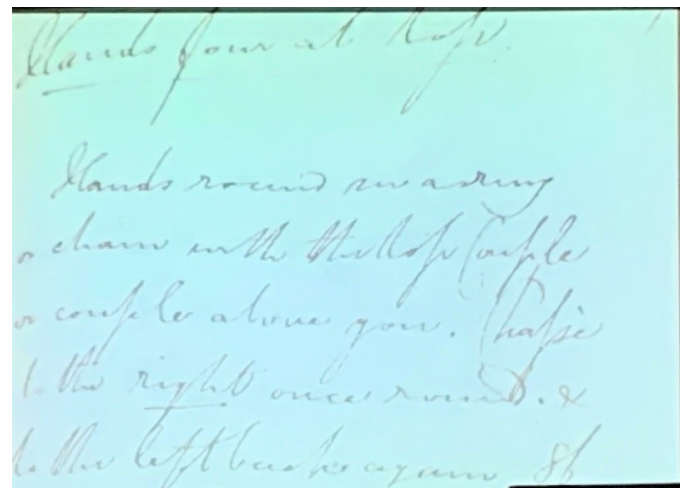 Hands four at top.
Hands round in a ring
or chain with the top Couple
or couple above you. Chasse
to the right once round. &
to the left back again 8b